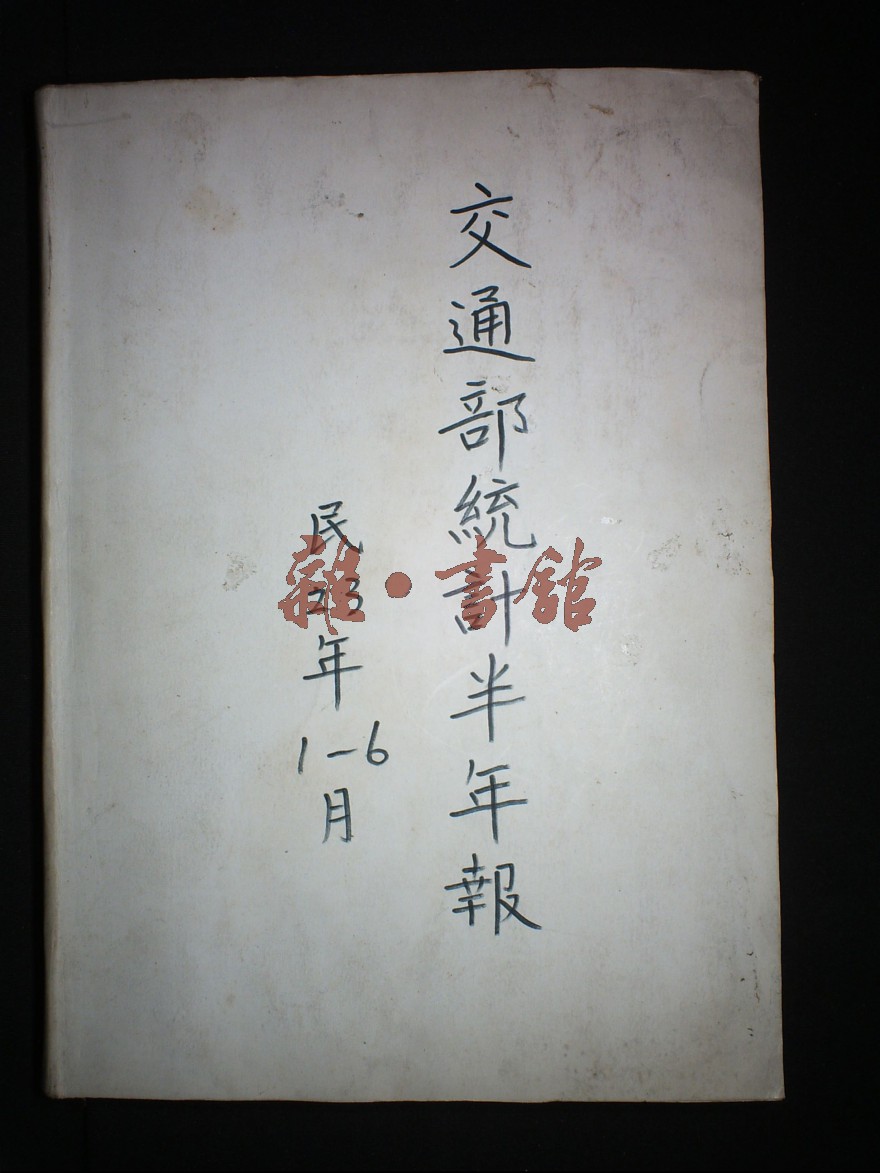 交通部統計半年報
民 年
1-6
月
雜·書館